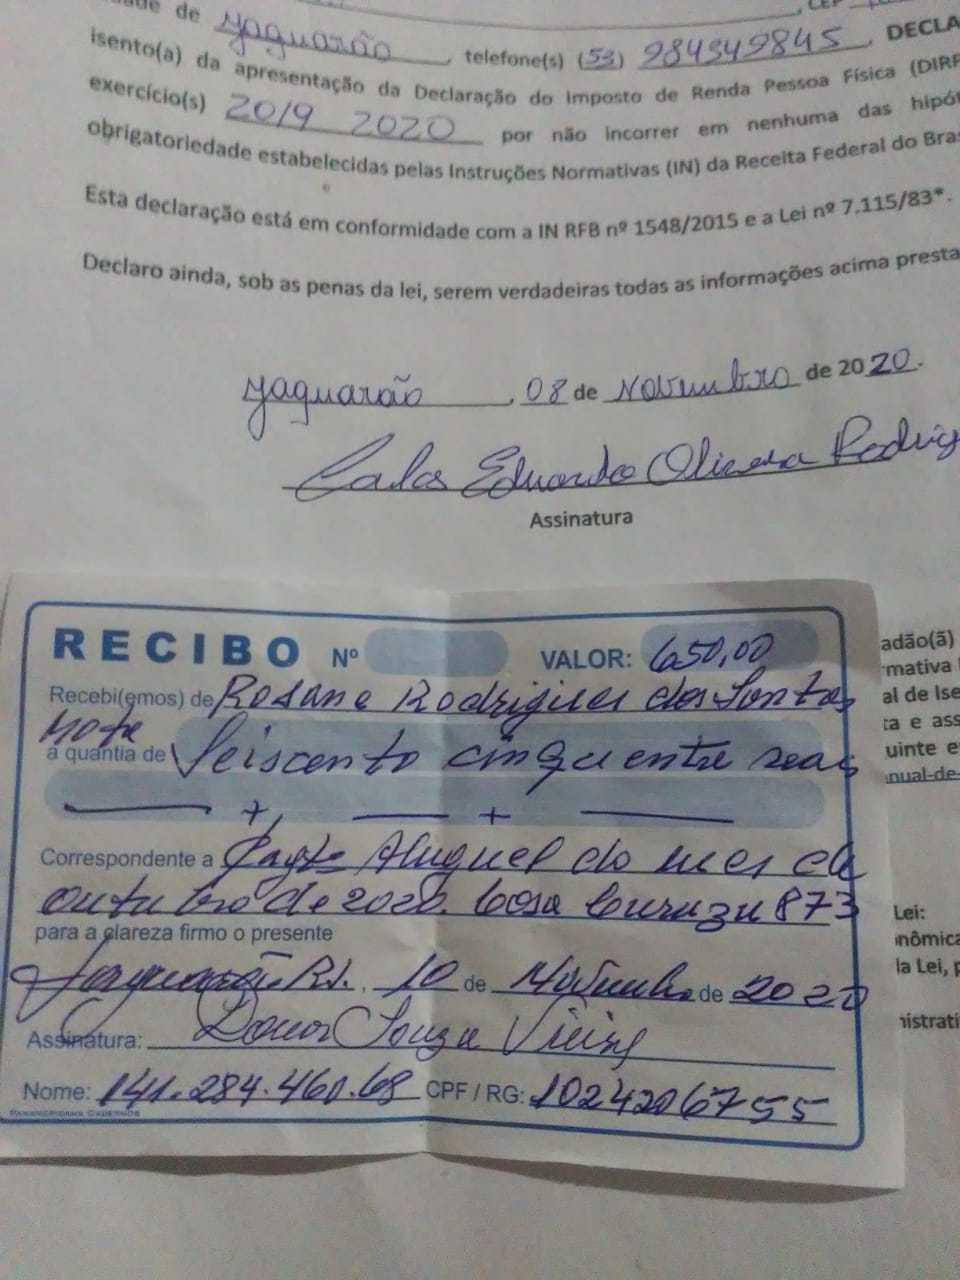 de Jaguarão, telefone(s) (53) 984349845, DECLA
isento(a) da apresentação da Declaração do Imposto de Renda Pessoa Física (DIRP
exercício(s) 2019 2020 por não incorrer em nenhuma das hipót
obrigatoriedade estabelecidas pelas Instruções Normativas (IN) da Receita Federal do Bras
Esta declaração está em conformidade com a IN RFB nº 1548/2015 e a Lei nº 7.115/83*.
Declaro ainda, sob as penas da lei, serem verdadeiras todas as informações acima presta
Jaguarão, 08 de Novembro de 2020.
Carlos Eduardo Oliveira Rodrig
Assinatura
RECIBO Nº VALOR: 650,00
Recebi(emos) de Rosane Rodrigues dos Santos
Mota
a quantia de Seiscento cinquenta reais
Correspondente a Pagto Aluguel do mes de
outubro de 2020. Casa Curuzu 873
para a clareza firmo o presente
Jaguarão RS., 10 de Novembro de 2020
Assinatura: Souza Vieira
Nome: 141.284.460.68 CPF / RG: 1024206755
PANAMERICANA CADERNOS
adão(ã)
rmativa
al de Ise
ta e ass
uinte e
anual-de-
Lei:
onômica
la Lei, p
nistrati